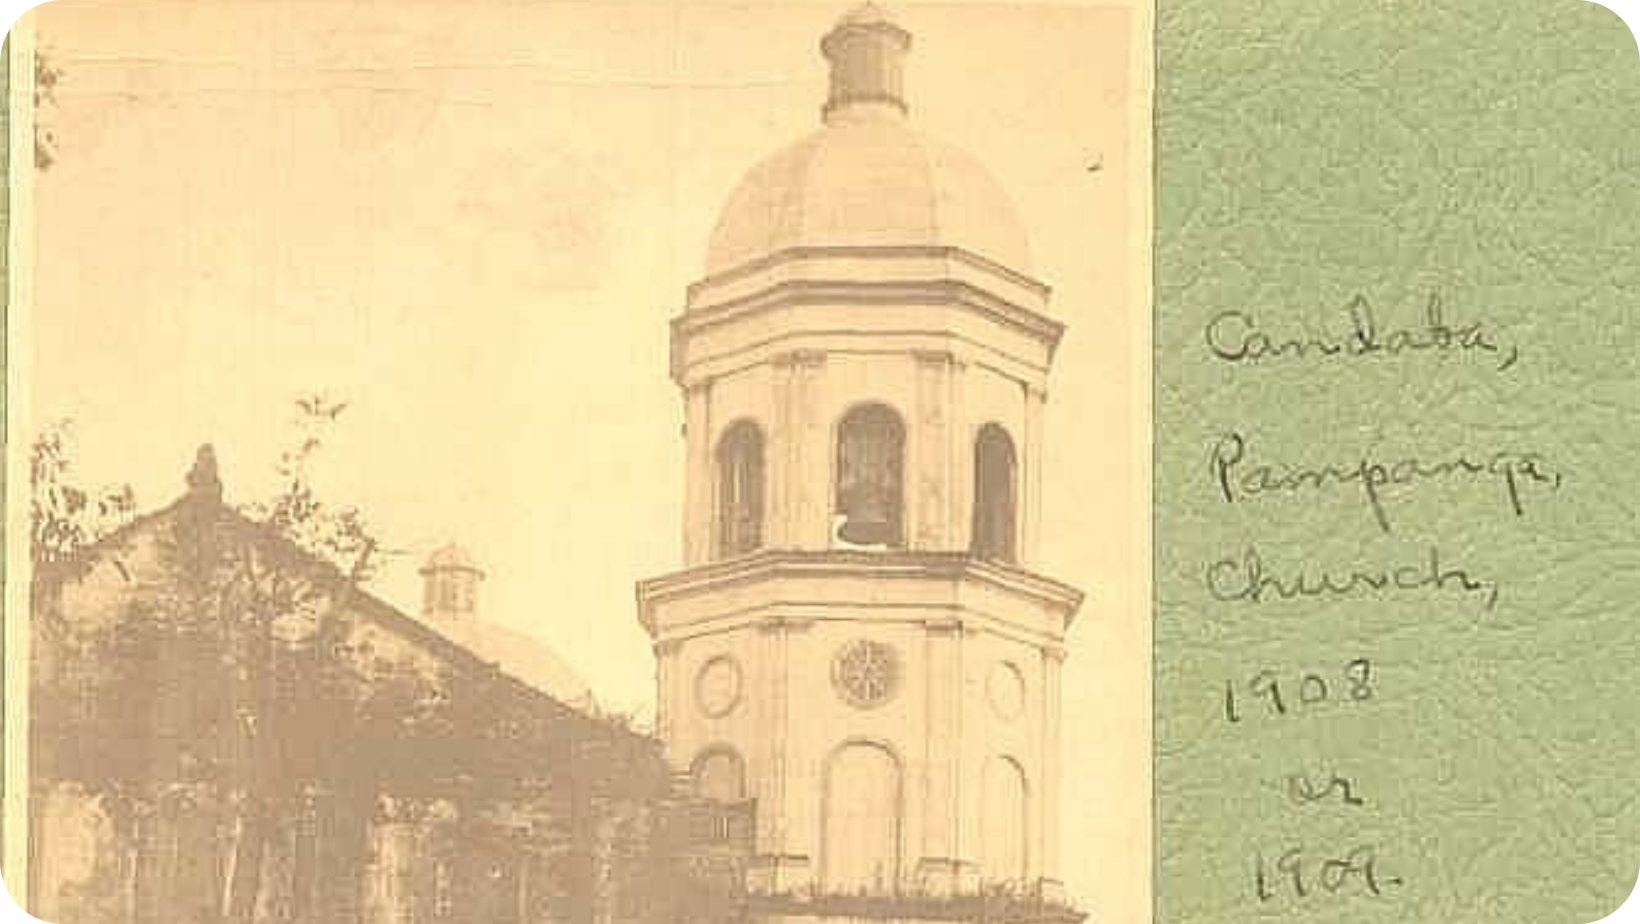 Candaba,
Pampanga,
Church,
1908
or
1909.